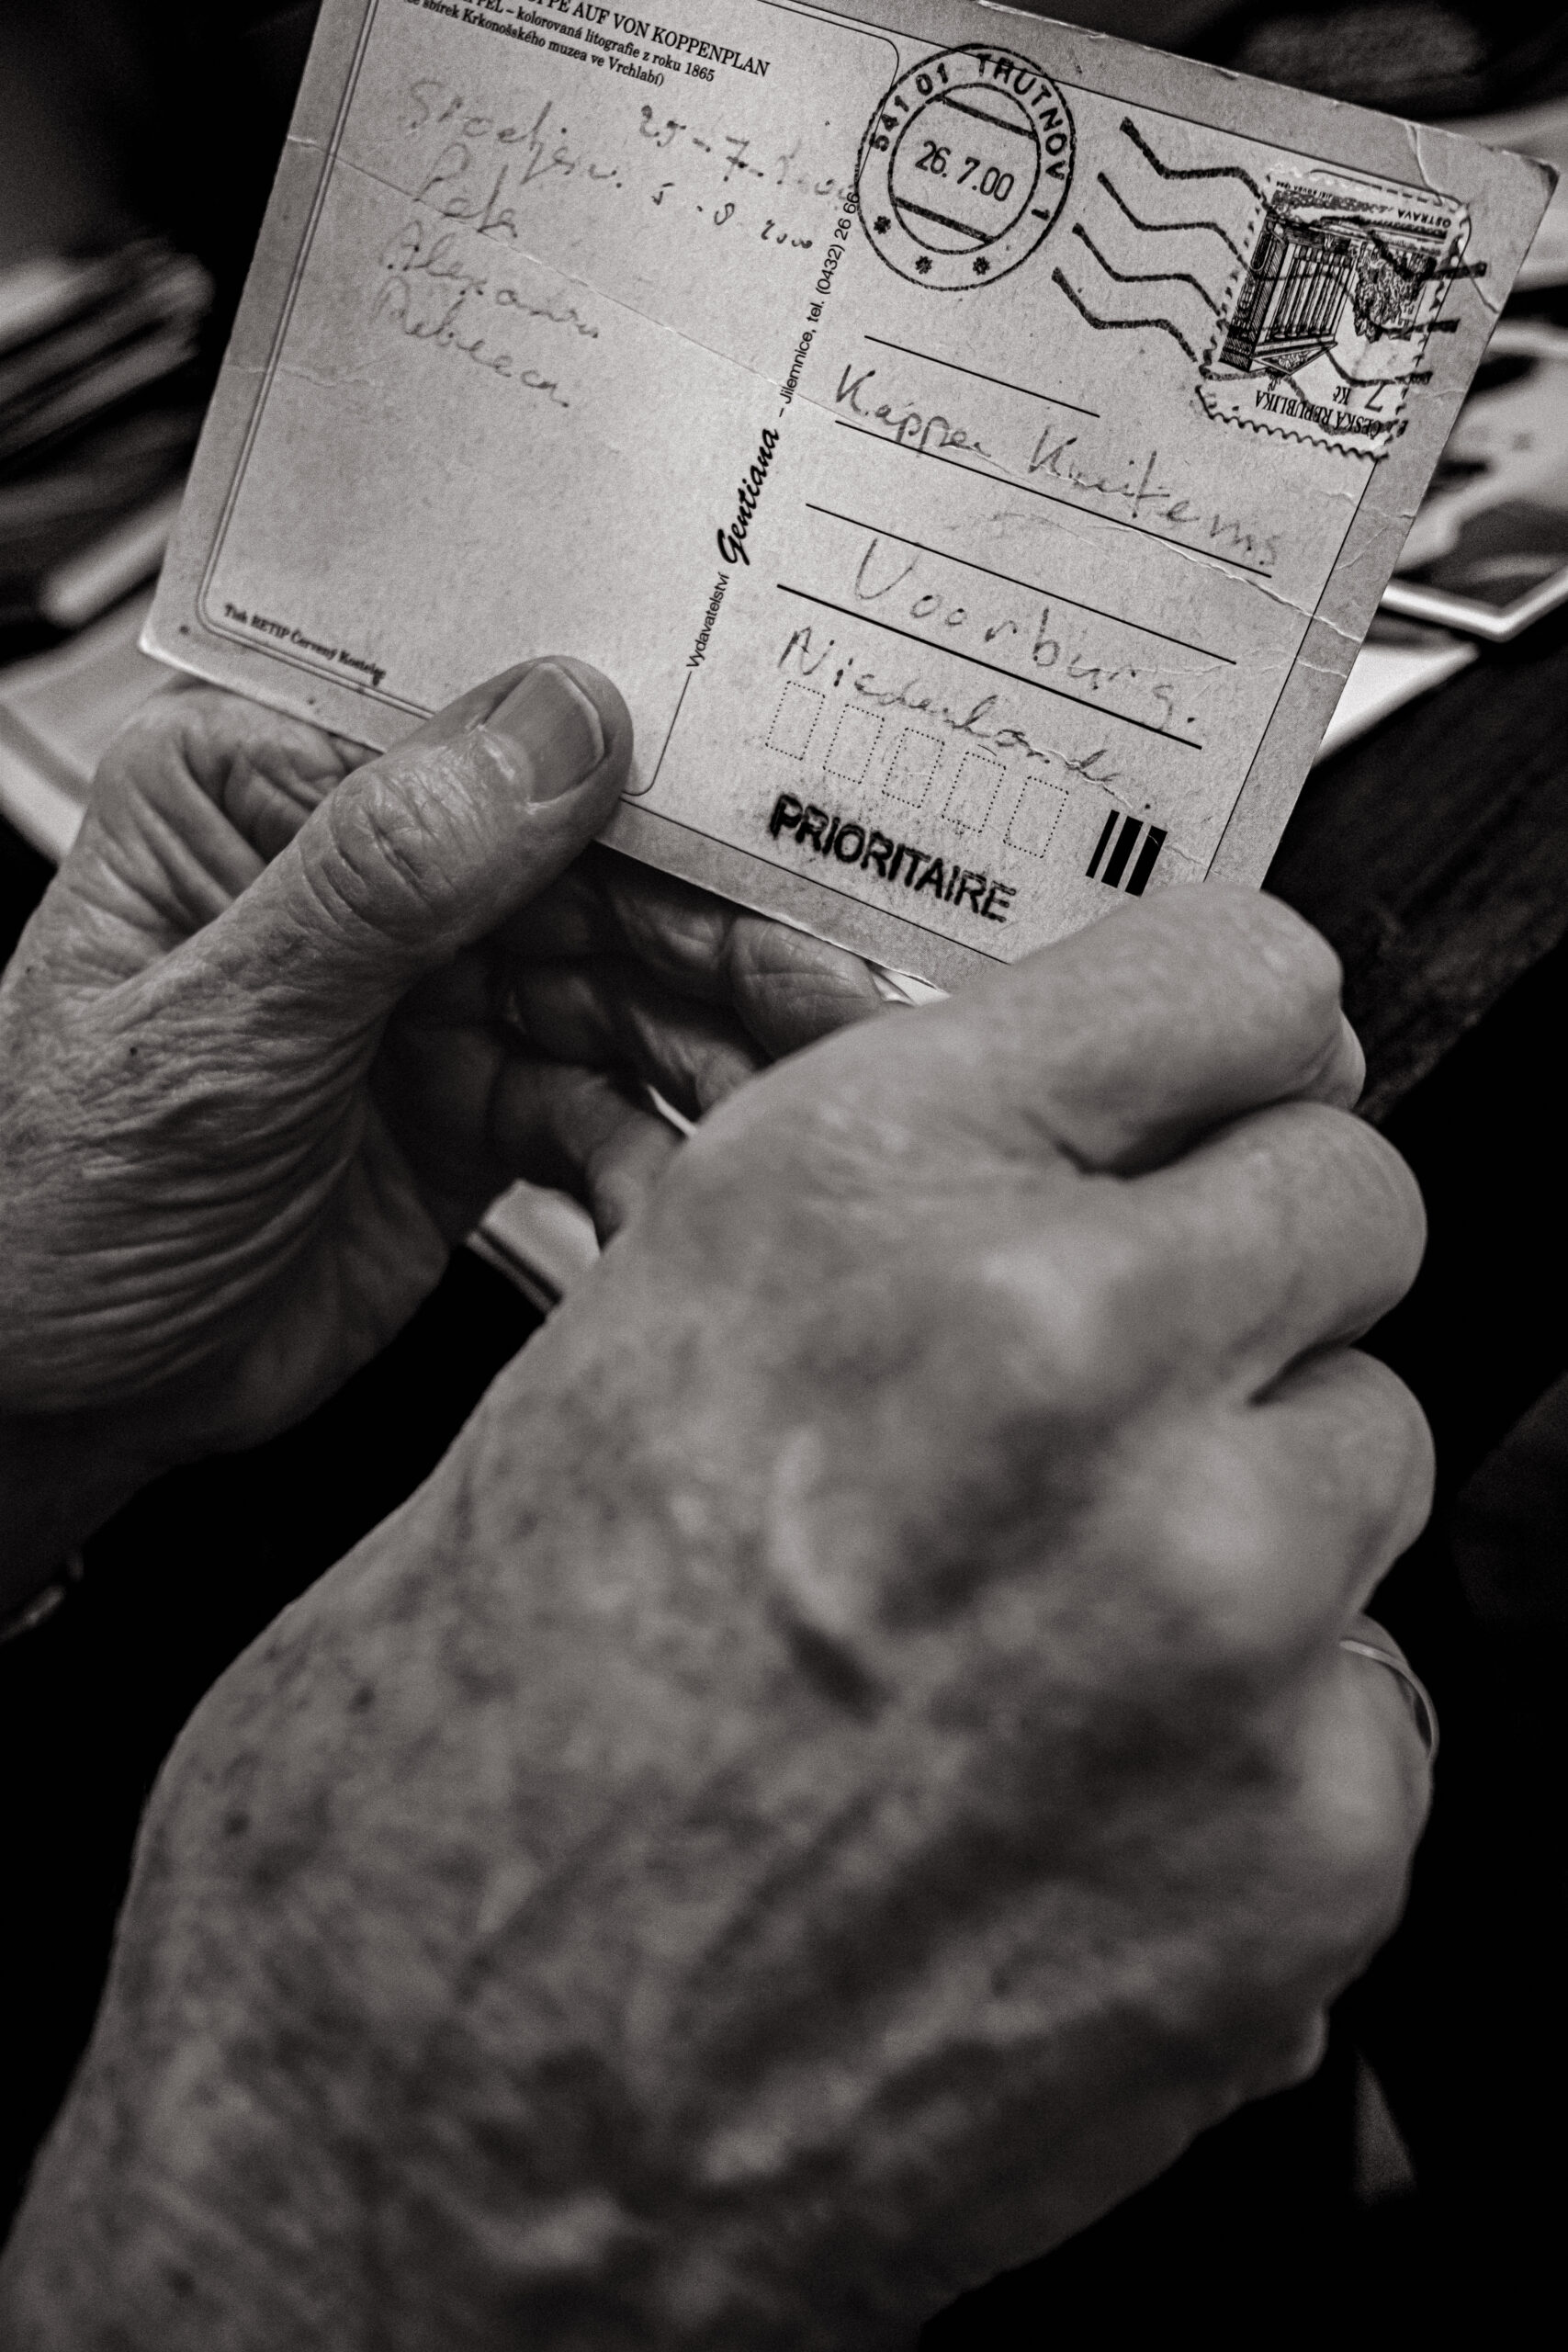 PPE AUF VON KOPPENPLAN
PEL – kolorovaná litografie z roku 1865
ze sbírek Krkonošského muzea ve Vrchlabí)
29-7-2000
5-8 2000
Peta
Alexandra
Rebecca
Tisk RETIP Červený Kostelec
Vydavatelství Gentiana – Jilemnice, tel. (0432) 26 66
541 01 TRUTNOV 1
26.7.00
OSTRAVA
7 Kč
ČESKÁ REPUBLIKA
Voorburg.
Niederlande.
PRIORITAIRE